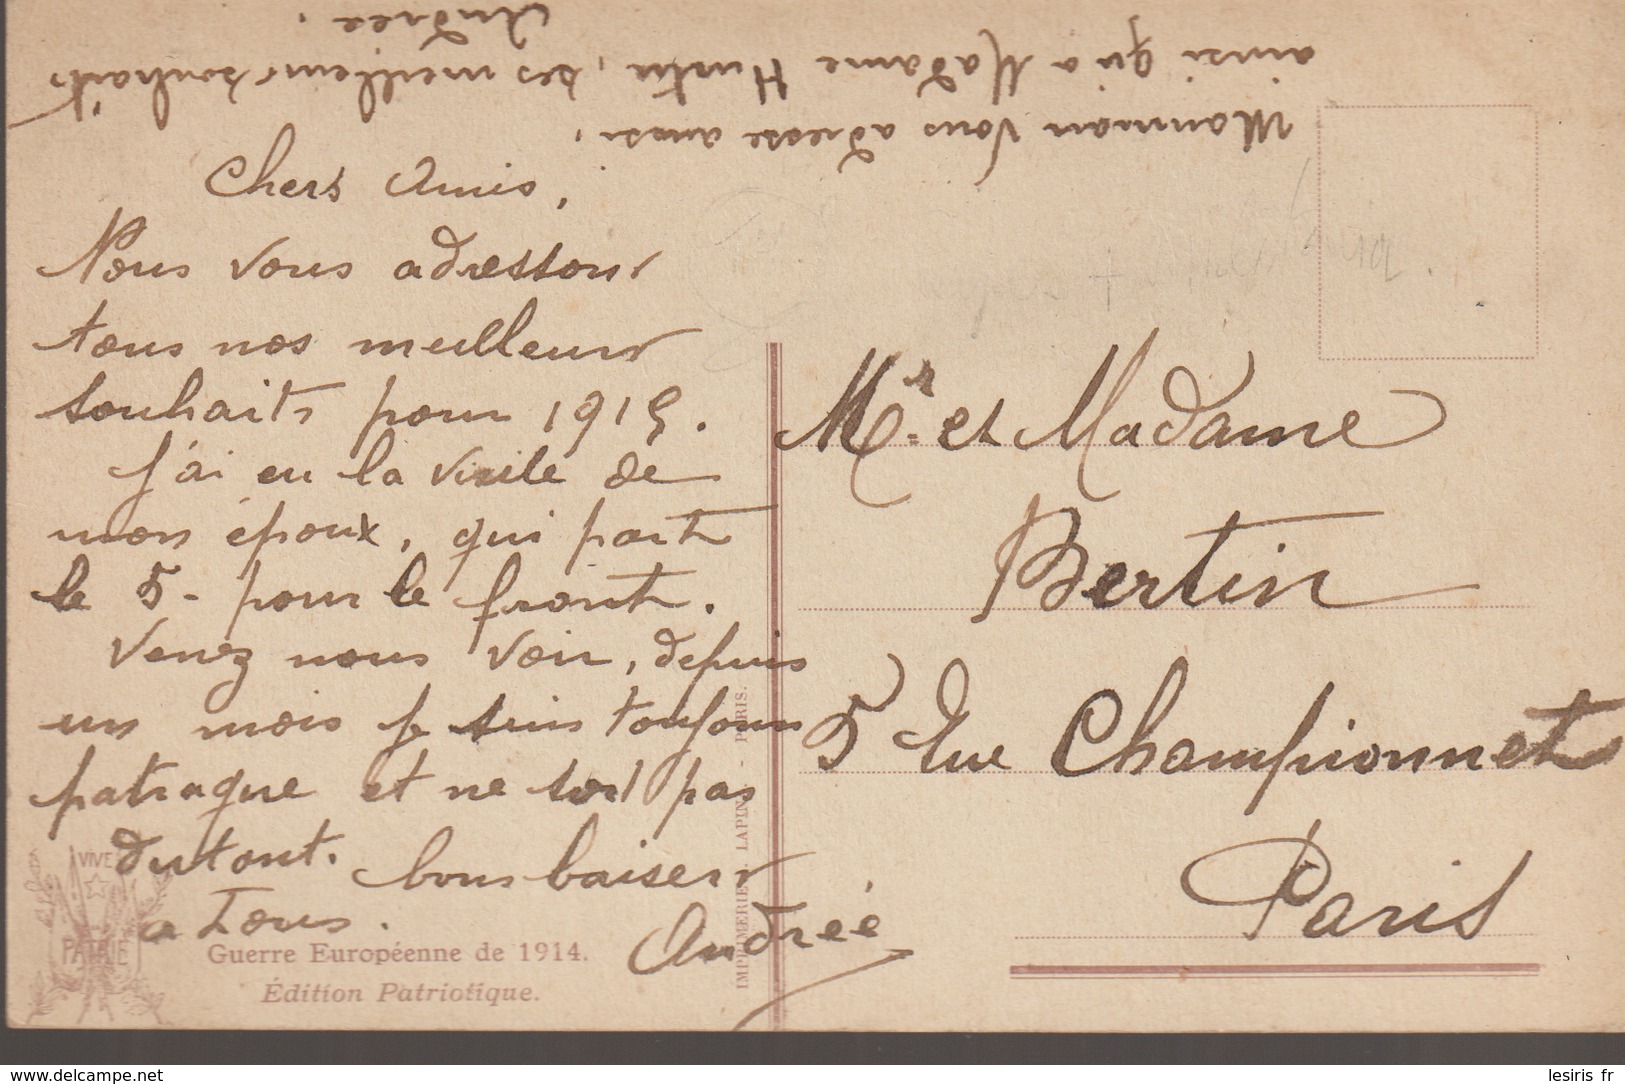 Chers Amis,
Nous vous adressons
tous nos meilleurs
souhaits pour 1915.
J'ai eu la visite de
mon époux, qui part
le 5 - pour le front.
Venez nous voir, depuis
un mois je suis toujours
patraque et ne sort pas
du tout. bons baisers
a Tous.
Andrée
Mamman vous adresse aussi,
ainsi qu'a Madame, ses meilleurs souhaits
Andrée.
Mr. et Madame
Bertin
5 Rue Championnet
Paris
VIVE
PATRIE
Guerre Européenne de 1914.
Édition Patriotique.
IMPRIMERIE. LAPINA - PARIS.
www.delcampe.net
lesiris_fr